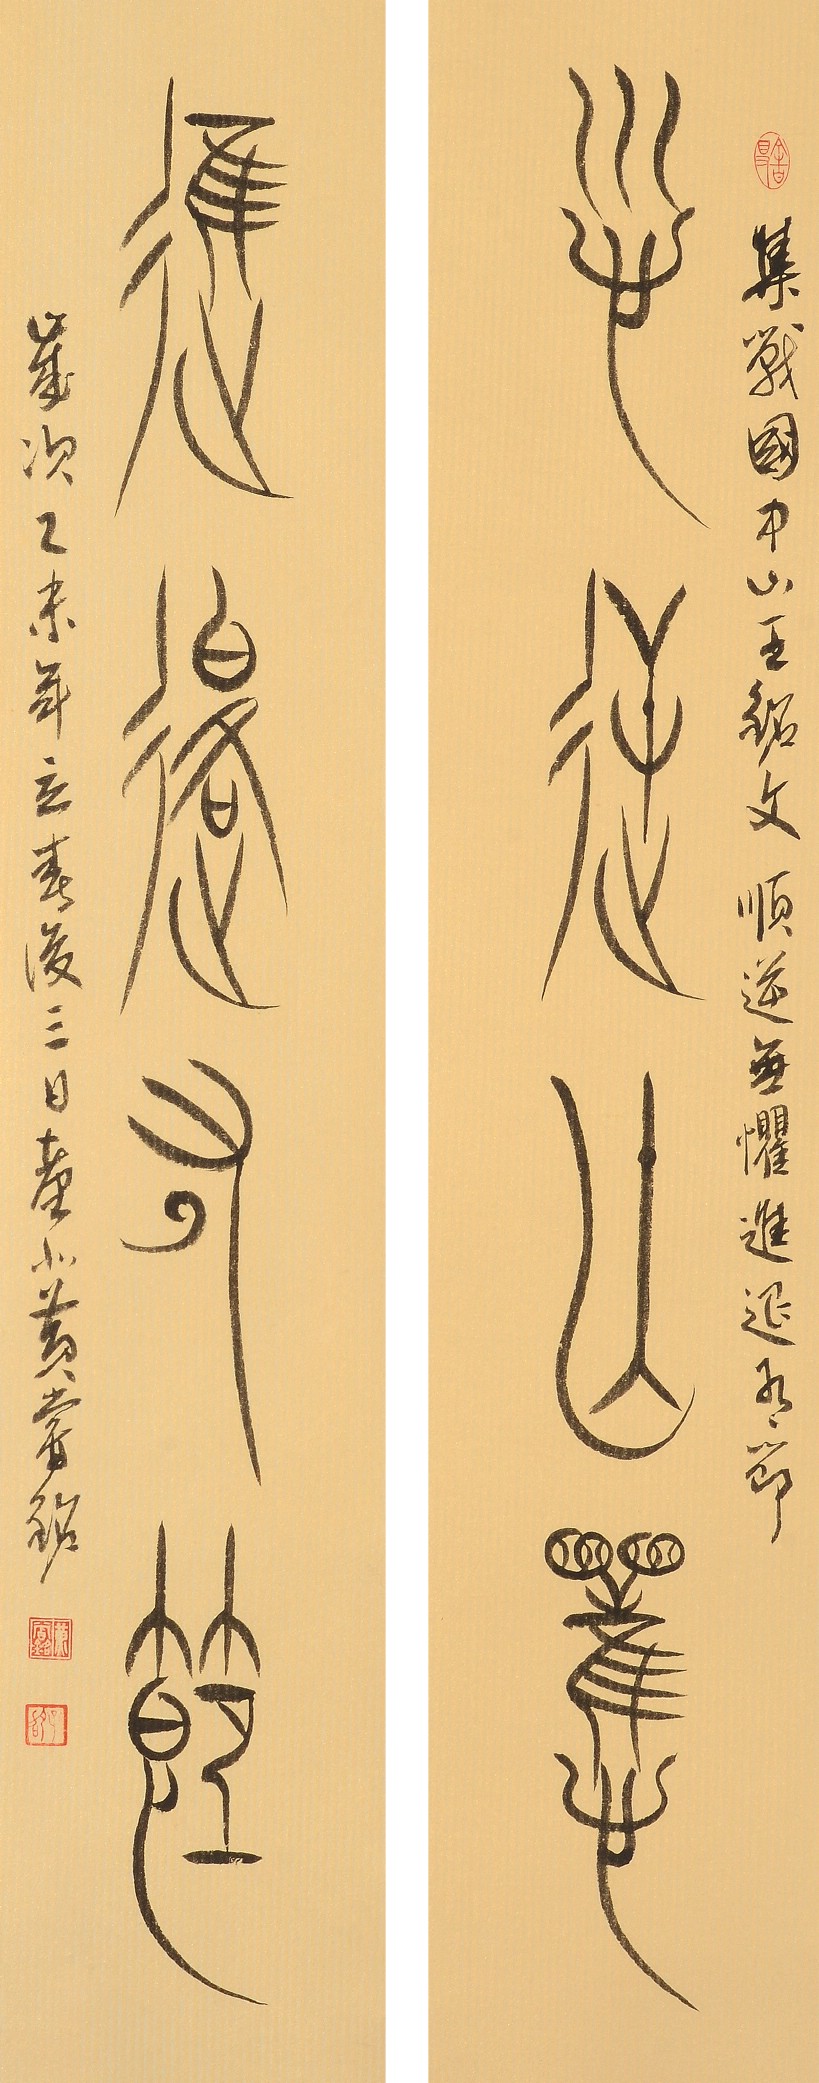 集戰國中山王銘文 順逆無懼進退有節
順逆亡懼
進退有節
歲次乙未年立春後三日台北黃嘗銘